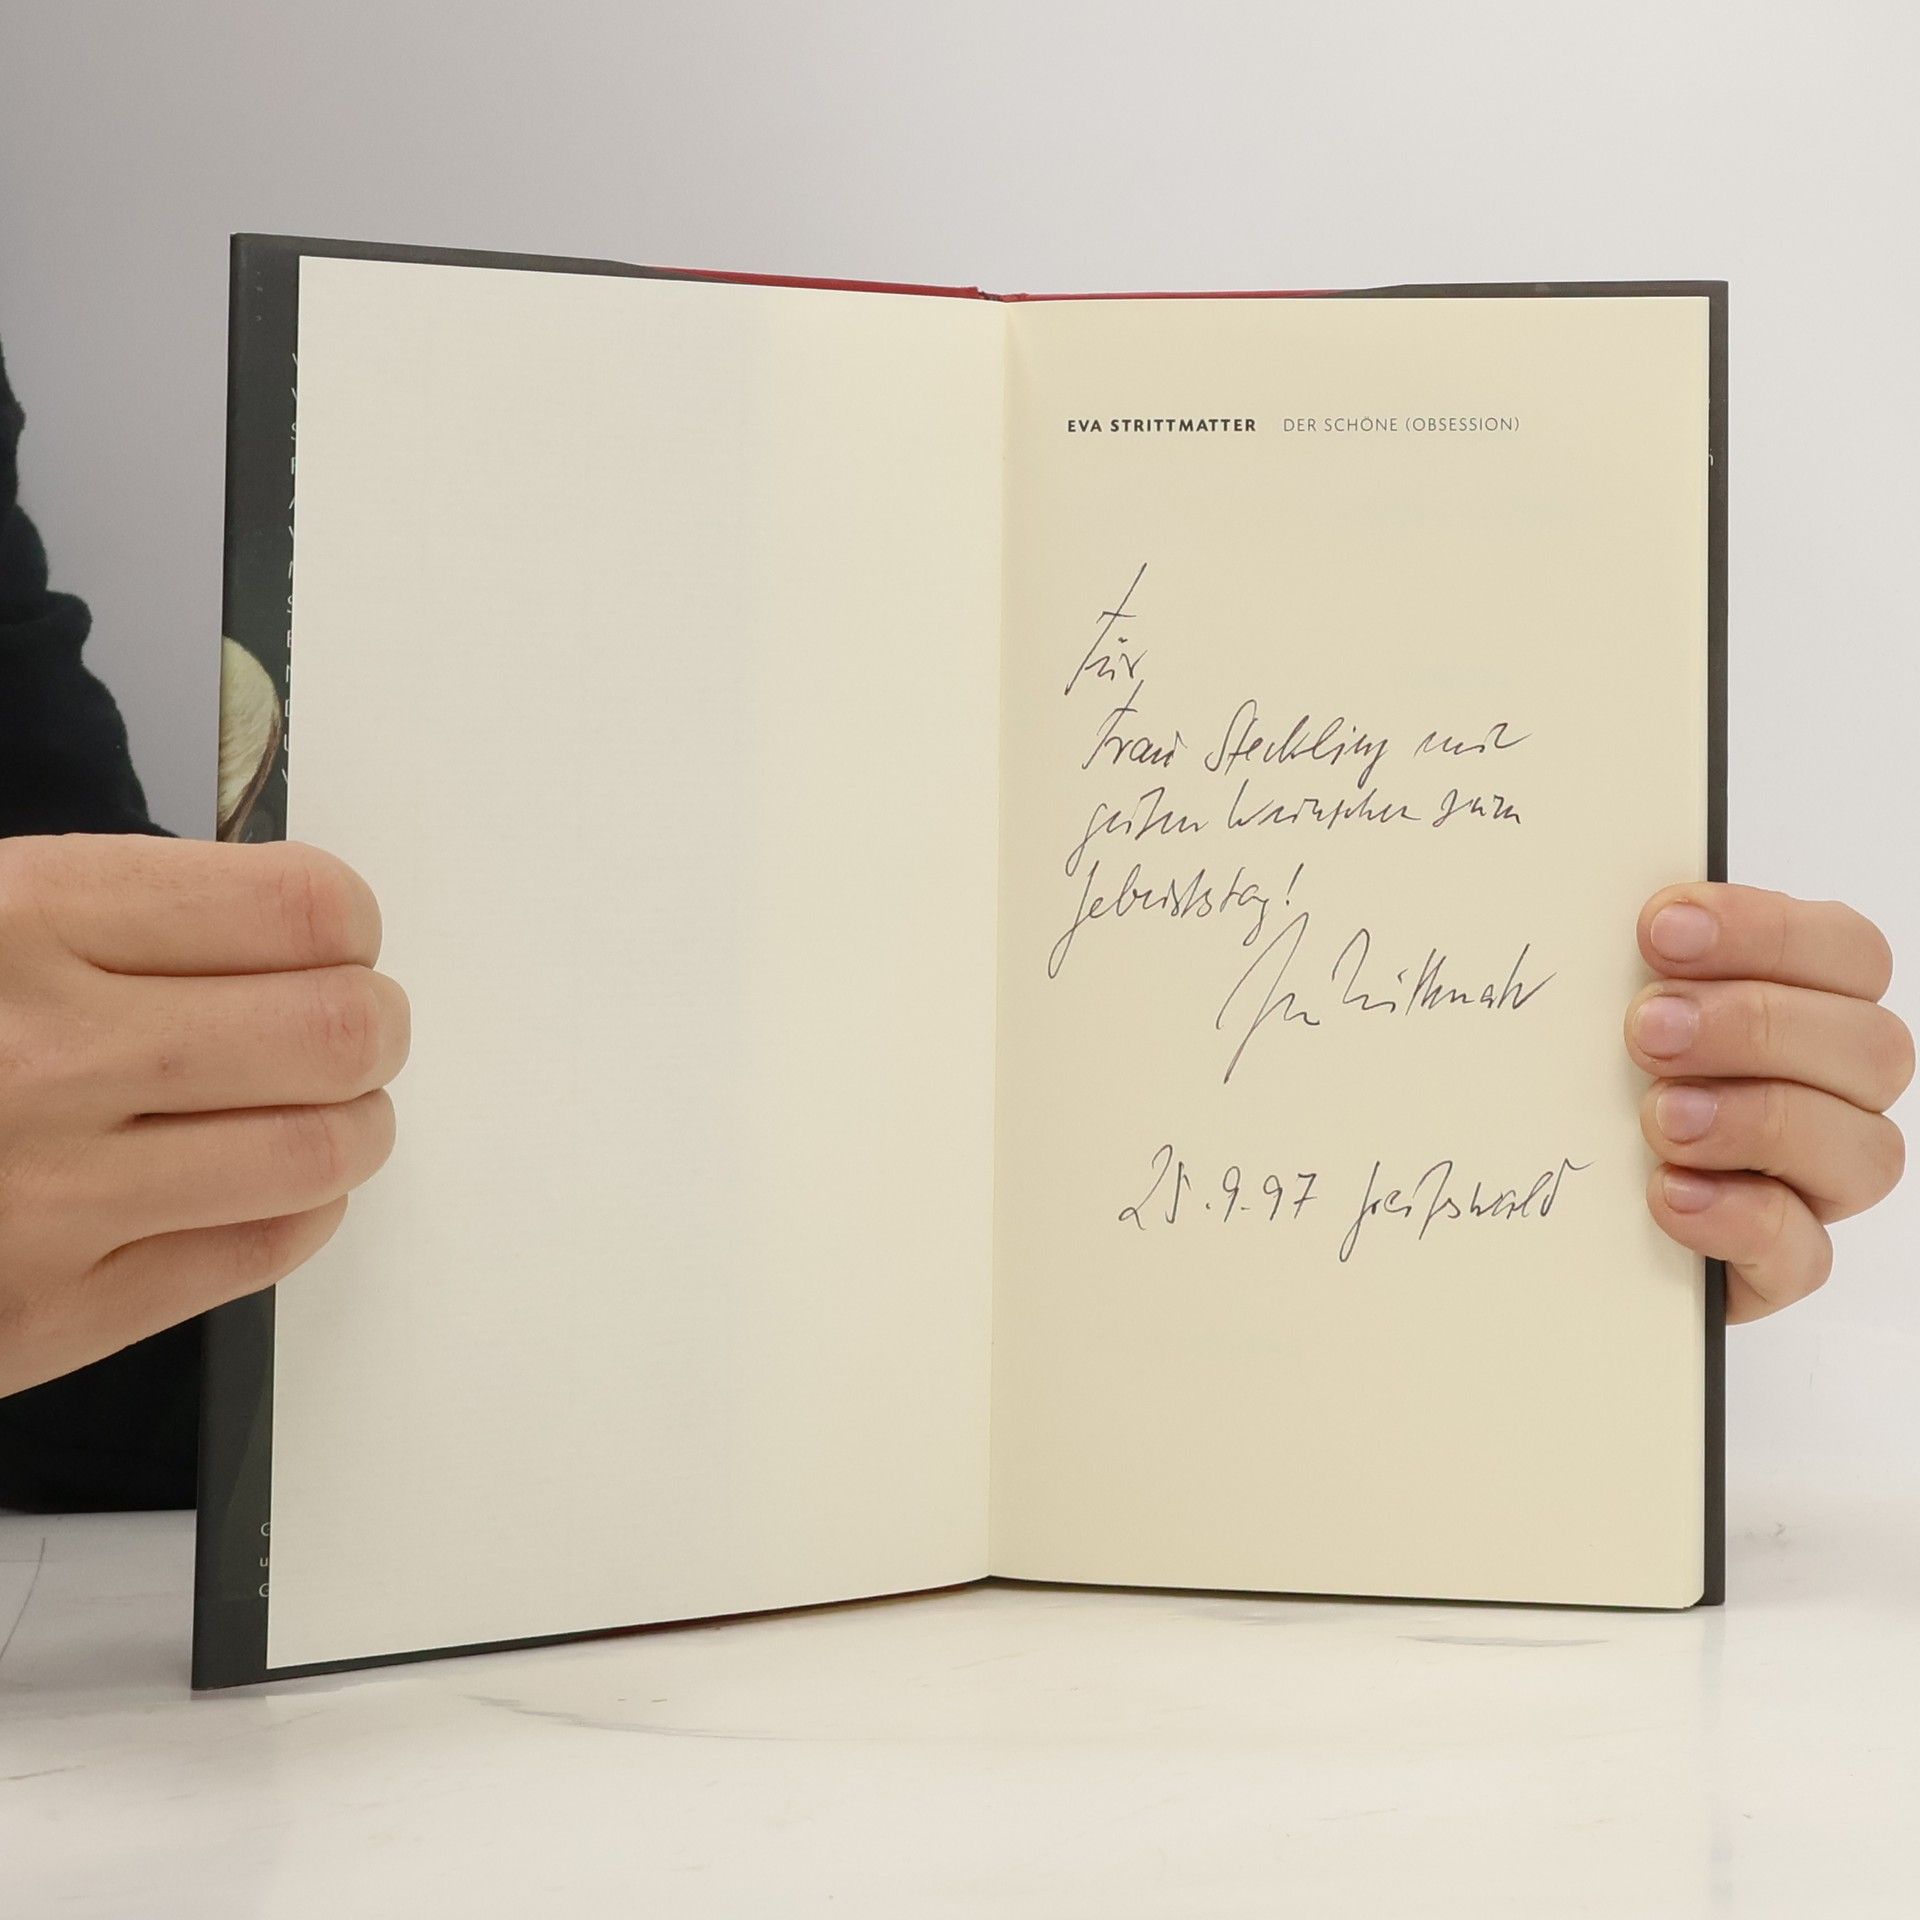 EVA STRITTMATTER DER SCHÖNE (OBSESSION)
Für
Frau Steckling mit
guten Wünschen zum
Geburtstag!
Eva Strittmatter
25.9.97 Greifswald